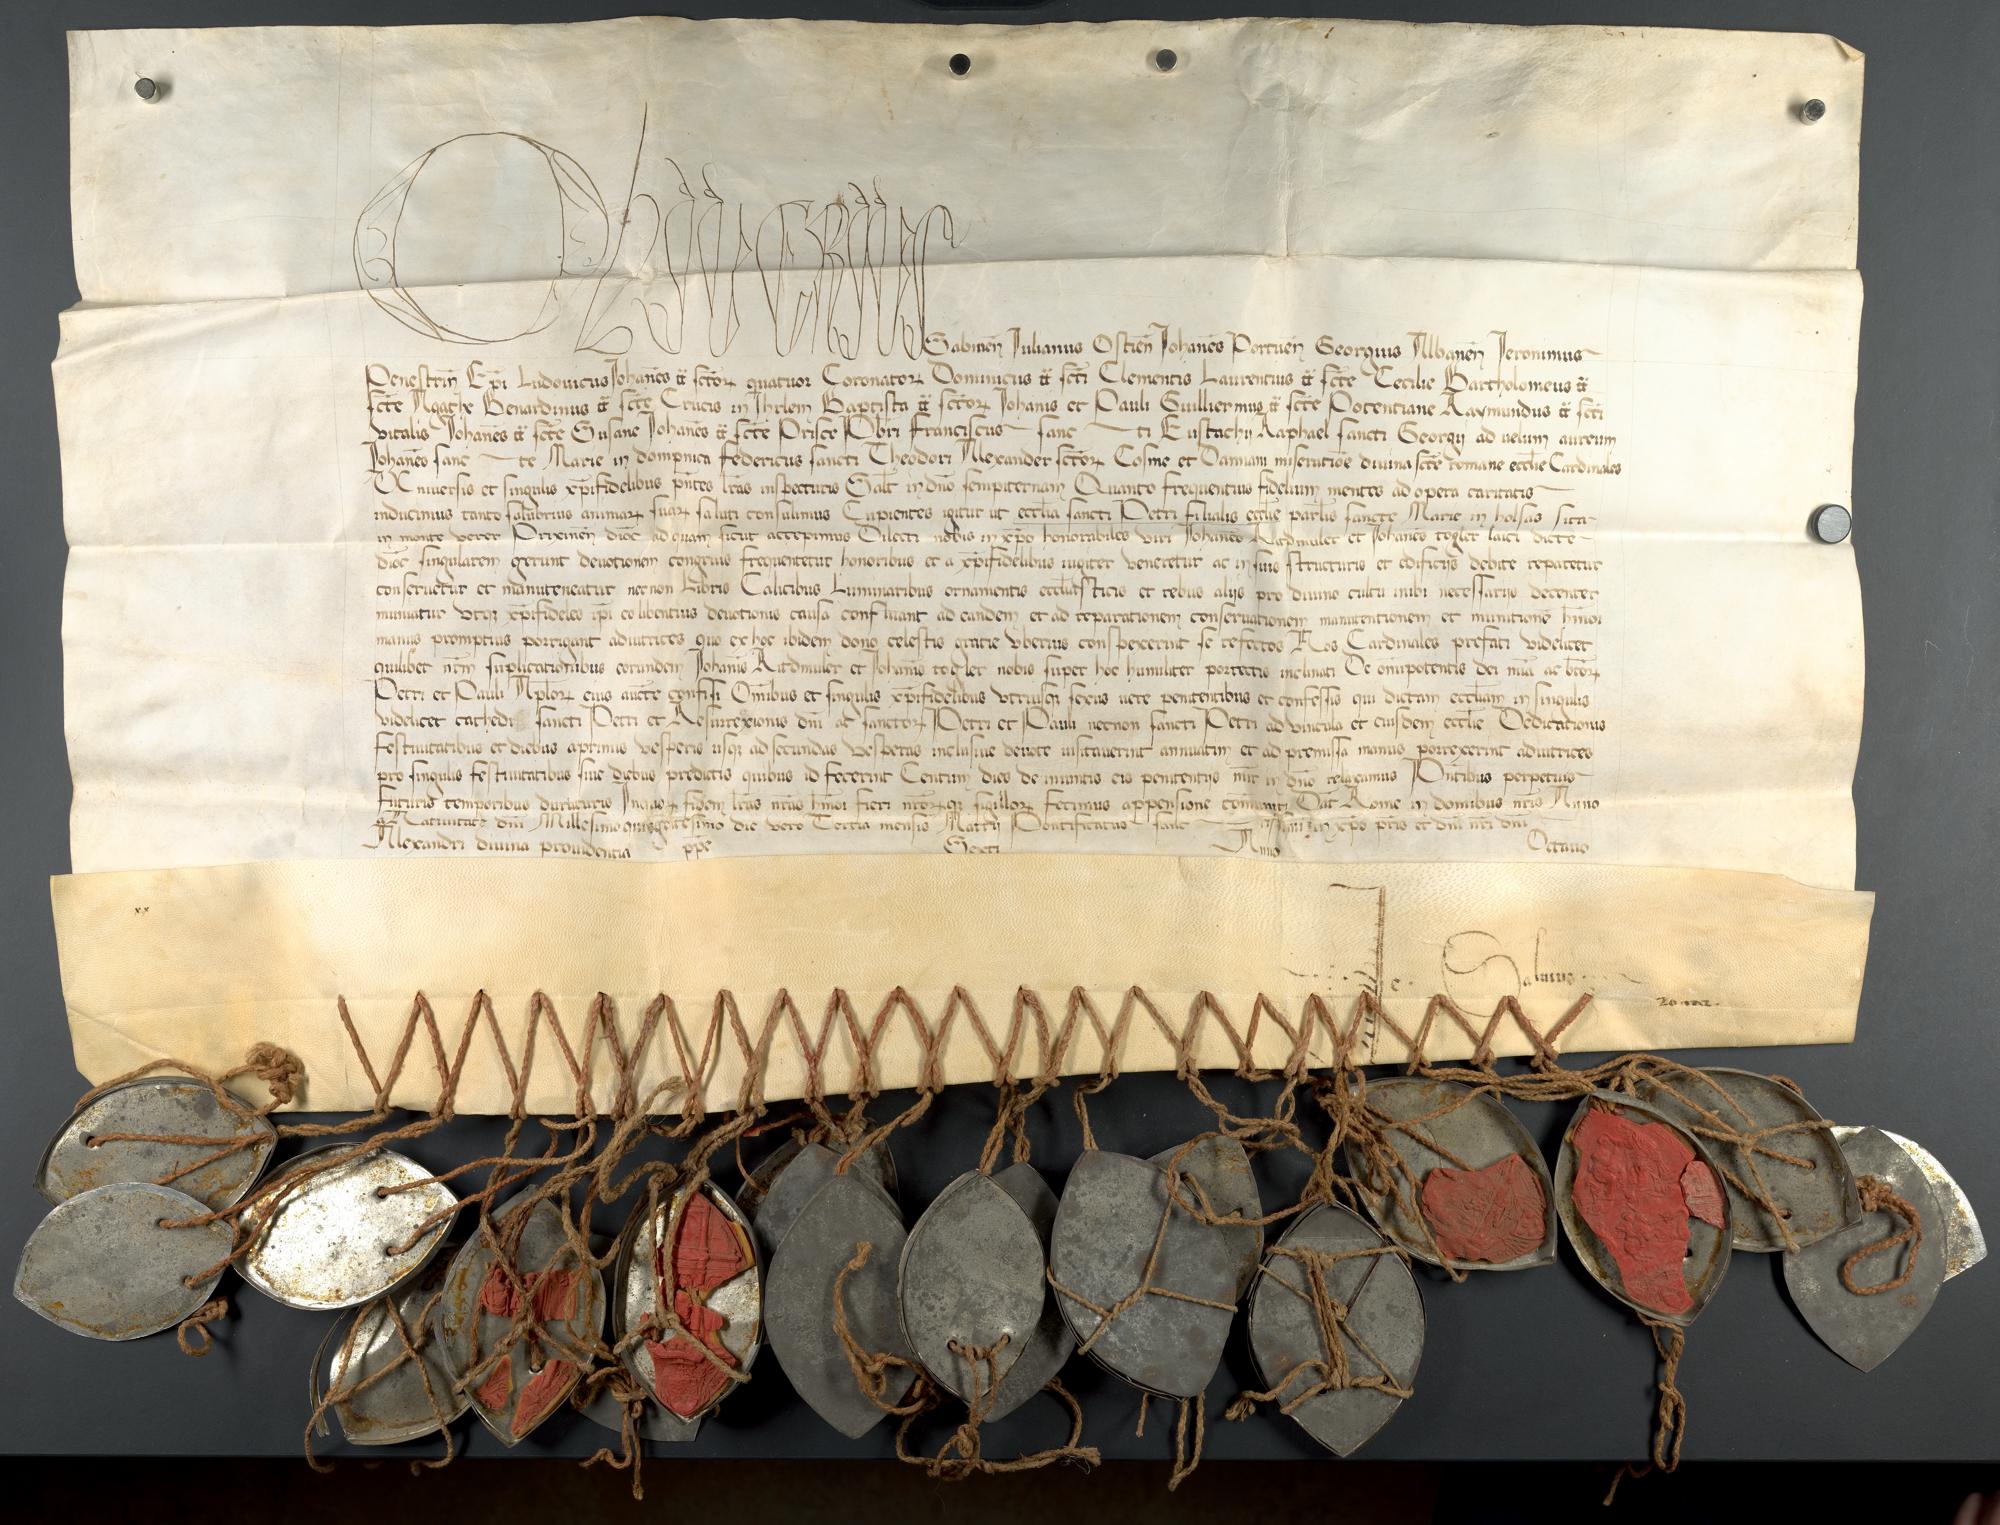 Oliuerius
Sabineñ Iulianus Ostieñ Johanes Portueñ Georgius Albaneñ Jeronimus
Penestriñ Epi Ludouicus Johanes tt sctor quatuor Coronator Dominicus tt scti Clementis Laurentius tt scte Cecilie Bartholomeus tt
scte Agathe Benardinus tt scte Crucis in Jhrlem Baptista tt sctor Johanis et Pauli Guilliermus tt scte Potentiane Raymundus tt scti
vitalis Johanes tt scte Susane Johanes tt scte Prisce Pbri Franciscus sanc ti Eustachij Raphael sancti Georgij ad velum aureum
Johanes sanc te Marie in dompnica Federicus sancti Theodori Alexander sctor Cosme et Damiani miseratioe diuina scte romane ecclie Cardinales
Vniuersis et singulis xpifidelibus pntes lras inspecturis Salt in dno sempiternam Quanto frequentius fidelium mentes ad opera caritatis
inducimus tanto salubrius animar suar saluti consulimus Cupientes igitur ut ecclia sancti Petri filialis ecclie parlis sancte Marie in holsas sita
in monte verer Prixineñ dioc ad quam sicut accepimus Dilecti nobis in xpo honorabiles viri Johanes Ritdmuler et Johanes togler laici dicte
dioc singularem gerunt deuotionem congruis frequentetur honoribus et a xpifidelibus iugiter veneretur ac in suis structuris et edificijs debite reparetur
conseruetur et manuteneatur necnon Libris Calicibus Luminaribus ornamentis ecclasticis et rebus alijs pro diuino cultu inibi necessarijs decenter
muniatur vtqz xpifideles ipi eo libentius deuotionis causa confluant ad eandem et ad reparationem conseruationem manutentionem et munitione hmoi
manus promptius porrigant adiutrices quo ex hoc ibidem dono celestis gratie vberius conspexerint se refectos Nos Cardinales prefati videlicet
quilibet nrm suplicationibus eorundem Johanis Ritdmuler et Johanis togler nobis super hoc humiliter porrectis inclinati De omipotentis dei mia ac btor
Petri et Pauli Aplor eius aucte confisi Omibus et singulis xpifidelibus vtriusqz sexus uere penitentibus et confessis qui dictam eccliam in singulis
videlicet cathedre sancti Petri et Resurrexionis dni ac sanctor Petri et Pauli necnon sancti Petri ad vincula et eiusdem ecclie Dedicationis
festiuitatibus et diebus a primis vesperis usqz ad secundas vesperas inclusiue deuote uisitauerint annuatim et ad premissa manus porrexerint adiutrices
pro singulis festiuitatibus siue diebus predictis quibus id fecerint Centum dies de iniuntis eis penitentijs mir in dno relaxamus Pntibus perpetuis
futuris temporibus duraturis In quor fidem lras nras hmoi fieri nrorqz sigillor fecimus appensione comuniri Dat Rome in domibus nris Anno
a Natiuitate dni Millesimoquigetesimo die vero Tertia mensis Martij Pontificatus sanc in xpo pris et dni nri dni
Alexandri diuina prouidentia ppe Sexti Anno Octauo
xx
Saluius